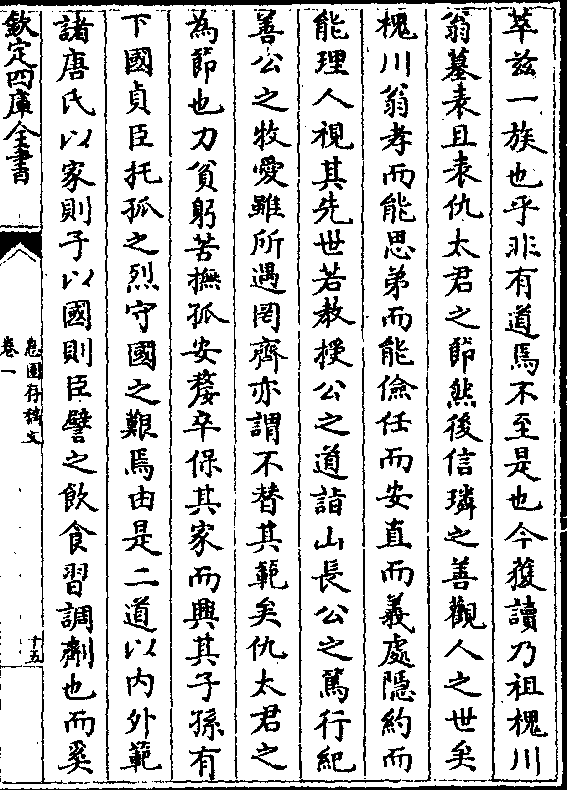 萃兹一族也乎非有道焉不至是也今獲讀乃祖槐川
翁墓表且表仇太君之節然後信璘之善觀人之世矣
槐川翁孝而能思弟而能儉任而安直而義處隱約而
能理人視其先世若教授公之道詣山長公之篤行紀
善公之牧愛雖所遇罔齊亦謂不替其範矣仇太君之
為節也力貧躬苦撫孤安嫠卒保其家而興其子孫有
下國貞臣托孤之烈守國之艱焉由是二道以内外範
諸唐氏以家則子以國則臣譬之飲食習調劑也而奚
欽定四庫全書
息園存稿文
卷一
十五